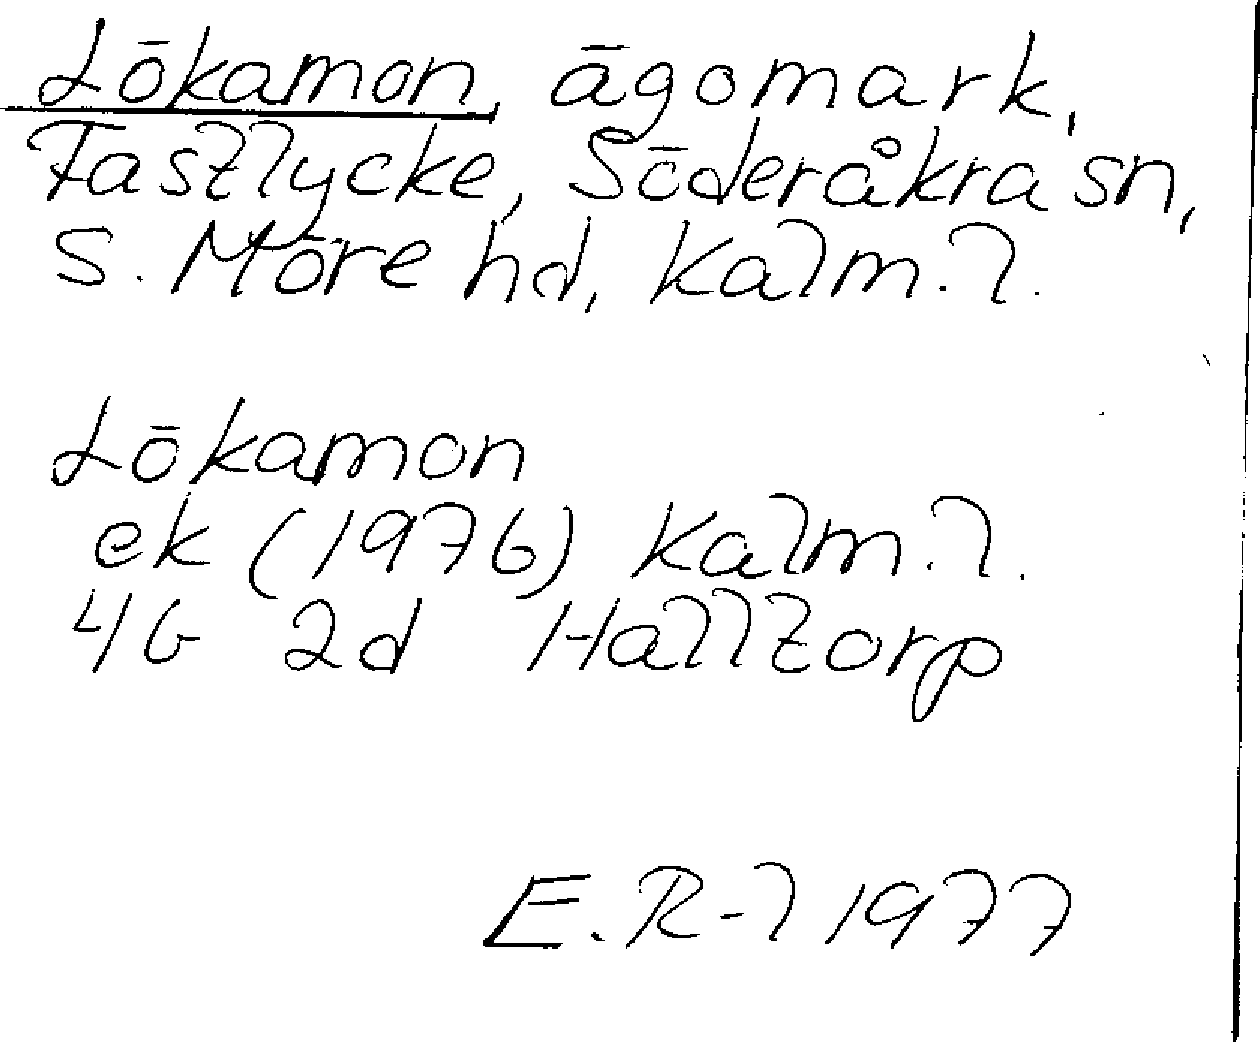 Lökamon, ägomark,
Fastlycke, Söderåkra sn,
S. Möre hd, Kalm. l.
Lökamon
ek (1976) Kalm. l.
4G 2d Halltorp
E. R-l 1977